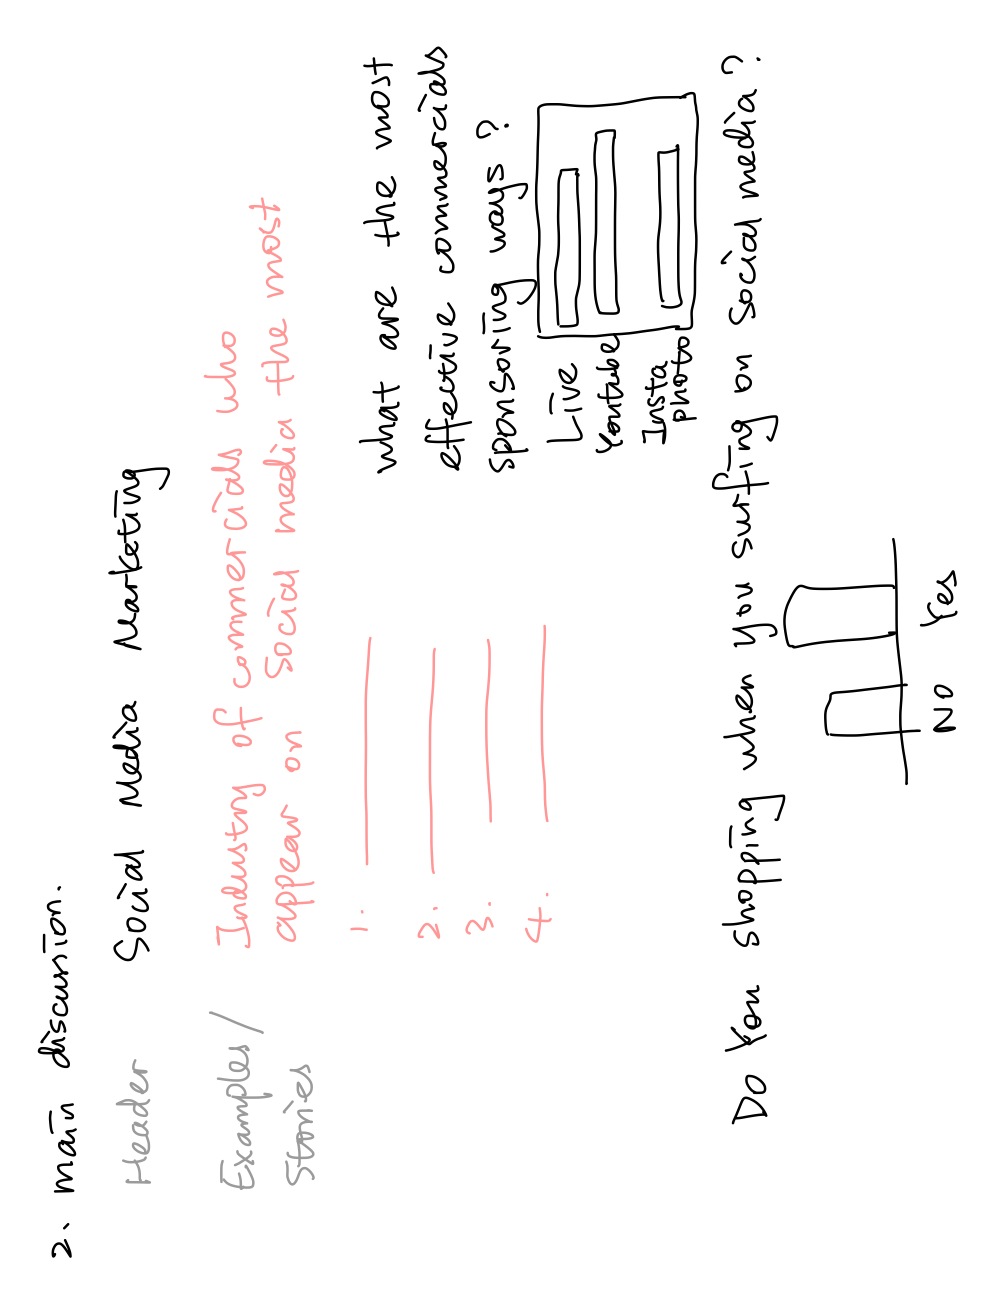 2. main discussion.
Header Social Media Marketing
Examples/ Industry of commercials who
Stories appear on Social media the most
1.
2.
3.
4.
what are the most
effective commercials
sponsoring ways?
Live
Youtube
Insta
photo
Do You shopping when you surfing on social media?
NO Yes